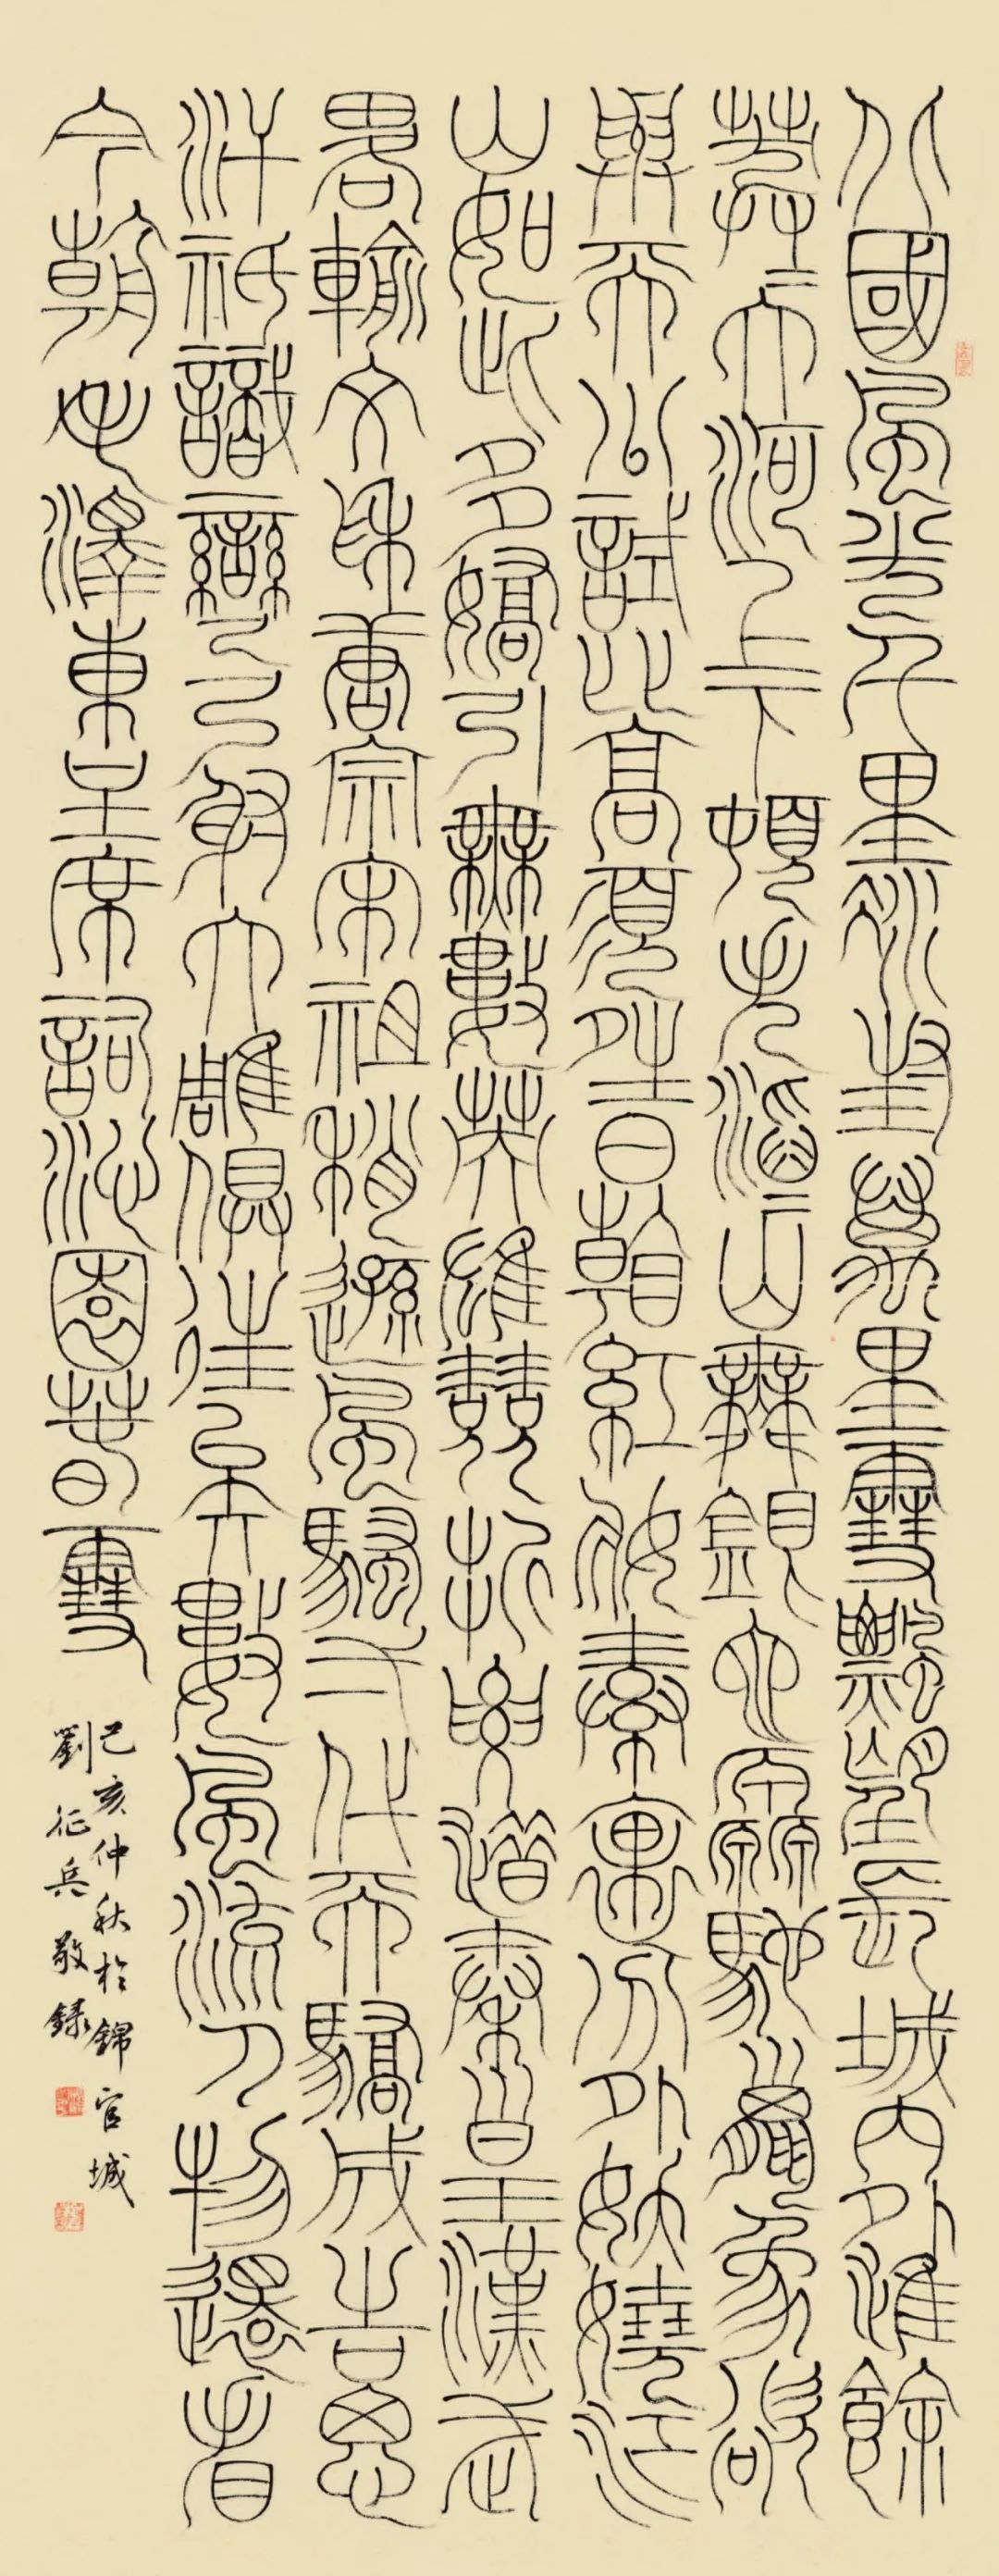 北國風光千里冰封萬里雪飄望長城內外惟餘
莽〻大河上下頓失滔〻山舞銀蛇原馳蠟象欲
與天公試比高須晴日看紅妝素裹分外妖嬈江
山如此多嬌引無數英雄競折腰惜秦皇漢武
略輸文采唐宗宋祖稍遜風騷一代天驕成吉思
汗祇識彎弓射大雕俱往矣數風流人物還看
今朝毛澤東主席詞沁園春雪
己亥仲秋於錦官城
劉征兵敬録